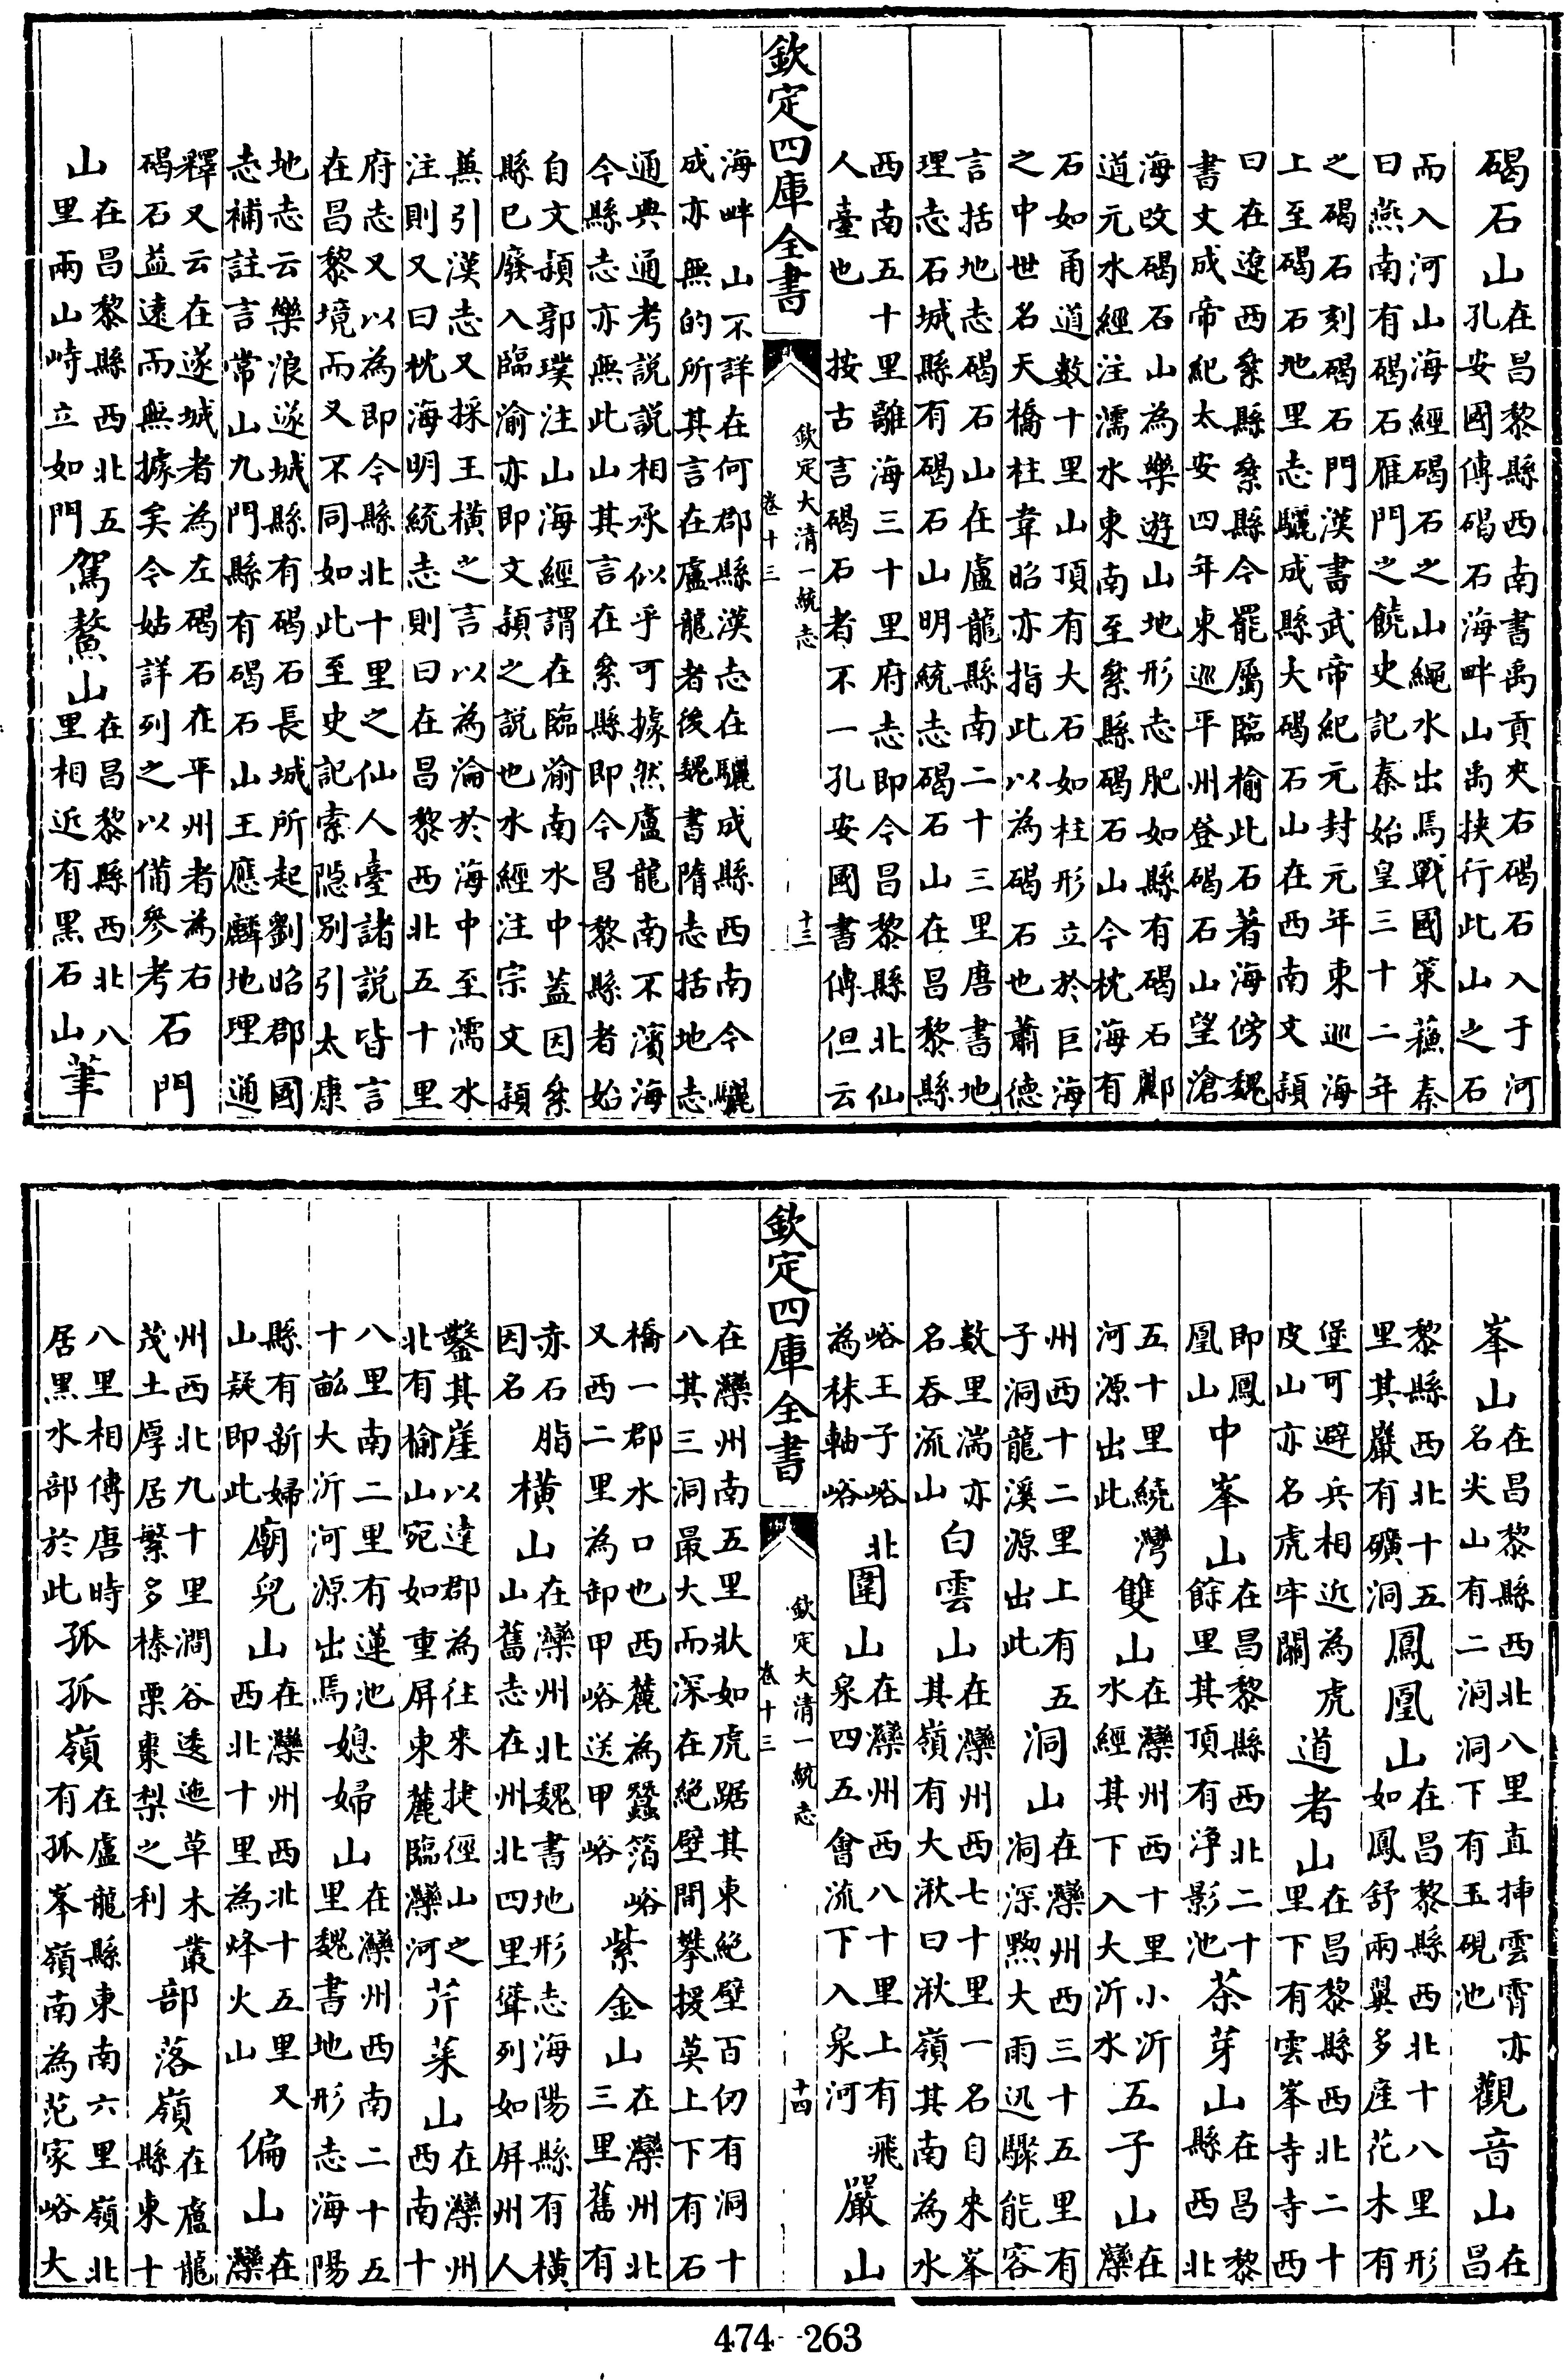 碣石山在昌黎縣西南書禹貢夾右碣石入于河孔安國傳碣石海畔山禹挾行此山之石
而入河山海經碣石之山繩水出焉戰國策蘇秦曰燕南有碣石雁門之饒史記秦始皇三十二年
之碣石刻碣石門漢書武帝紀元封元年東巡海上至碣石地里志驪成縣大碣石山在西南文頴
曰在遼西絫縣絫縣今罷屬臨榆此石著海傍魏書文成帝紀太安四年東巡平州登碣石山望滄
海改碣石山為樂遊山地形志肥如縣有碣石酈道元水經注濡水東南至絫縣碣石山今枕海有
石如甬道數十里山頂有大石如柱形立於巨海之中世名天橋柱韋昭亦指此以為碣石也蕭德
言括地志碣石山在盧龍縣南二十三里唐書地理志石城縣有碣石山明統志碣石山在昌黎縣
西南五十里離海三十里府志即今昌黎縣北仙人臺也 按古言碣石者不一孔安國書傳但云
欽定四庫全書
欽定大清一統志
卷十三
十三
海畔山不詳在何郡縣漢志在驪成縣西南今驪成亦無的所其言在盧龍者後魏書隋志括地志
通典通考說說相承似乎可據然盧龍南不濱海今縣志亦無此山其言在絫縣即今昌黎縣者始
自文頴郭璞注山海經謂在臨渝南水中蓋因絫縣已廢入臨渝亦即文頴之說也水經注宗文頴
無引漢志又採王横之言以為淪於海中至濡水注則又曰枕海明統志則曰在昌黎西北五十里
府志又以為即今縣北十里之仙人臺諸說皆言在昌黎境而又不同如此至史記索隱別引太康
地志云樂浪遂城縣有碣石長城所起劉昭郡國志補註言常山九門縣有碣石山王應麟地理通
釋又云在遂城者為左碣石在平州者為右碣石益遠而無據矣今姑詳列之以備參考石門
山在昌黎縣西北五里兩山峙立如門駕鰲山在昌黎縣西北八里相近有黑石山筆
峯山在昌黎縣西北八里直揷雲霄亦名尖山有二洞洞下有玉硯池觀音山在昌
黎縣西北十五里其巖有礦洞鳳凰山在昌黎縣西北十八里形如鳳舒兩翼多產花木有
堡可避兵相近為虎皮山亦名虎牢關道者山在昌黎縣西北二十里下有雲峯寺寺西
即鳳凰山中峯山在昌黎縣西北二十餘里其頂有淨影池茶芽山在昌黎縣西北
五十里繞灣河源出此雙山在灤州西十里小沂水經其下入大沂水五子山在灤
州西十二里上有五子洞龍溪源出此洞山在灤州西三十五里有洞深黝大雨迅驟能容
數里湍亦名吞流山白雲山在灤州西七十里一名自來峯其嶺有大湫曰湫嶺其南為水
峪王子峪北為秣軸峪圍山在灤州西八十里上有飛泉四五會流下入泉河嚴山
欽定四庫全書
欽定大清一統志
卷十三
十四
在灤州南五里狀如虎踞其東絶壁百仞有洞十八其三洞最大而深在絶壁間攀援莫上下有石
橋一郡水口也西麓為蠶箔峪又西二里為卸甲峪送甲峪紫金山在灤州北三里舊有
赤石脂因名横山在灤州北魏書地形志海陽縣有横山舊志在州北四里聳列如屏州人
鑿其崖以達郡為往來捷徑山之北有榆山宛如重屏東麓臨灤河芹菜山在灤州西南十
八里南二里有蓮池十畝大沂河源出焉媳婦山在灤州西南二十五里魏書地形志海陽
縣有新婦山疑即此廟兒山在灤州西北十五里又西北十里為烽火山偏山在灤
州西北九十里澗谷逶迤草木叢茂土厚居繁多榛栗棗梨之利部落嶺在盧龍縣東十
八里相傳唐時居黑水部於此孤孤嶺在盧龍縣東南六里嶺北有孤峯嶺南為范家峪大
474--263